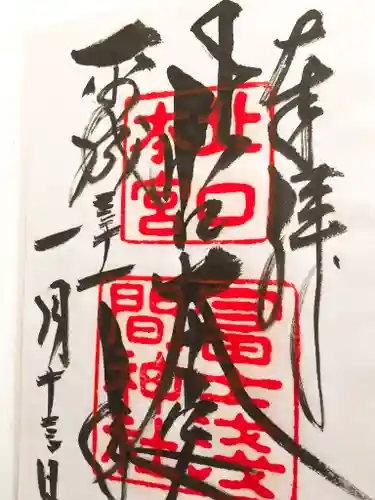 奉拝
北口
本宮
冨士淺
間神社
平成三十一年
一月十三日